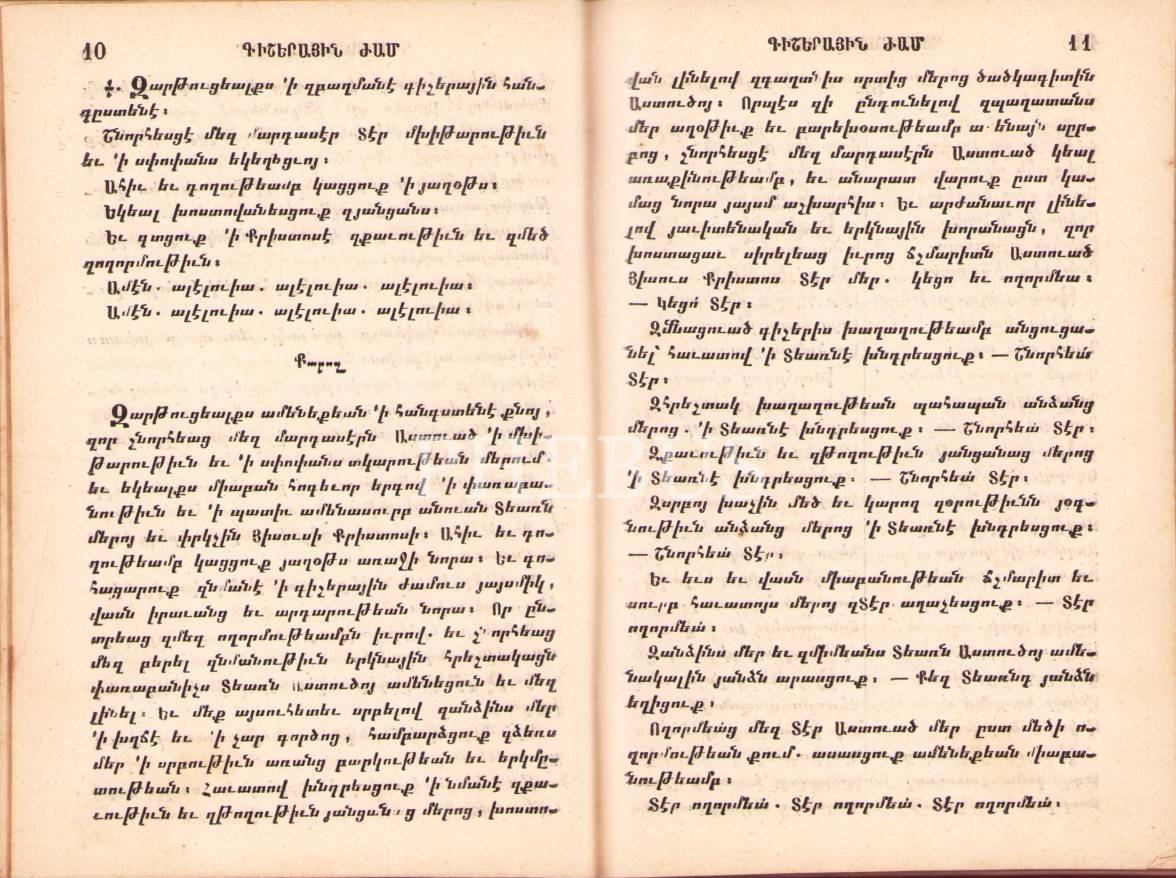 10
ԳԻՇԵՐԱՅԻՆ ԺԱՄ
ֆ. Զարթուցեալքս ՚ի զբաղմանէ գիշերային հան֊
գըստենէ։
Շնորհեսցէ մեզ մարդասէր Տէր մխիթարութիւն
եւ ՚ի սփոփանս եկեղեցւոյ։
Ահիւ եւ դողութեամբ կացցուք ՚ի յաղօթս։
Եկեալ խոստովանեսցուք զյանցանս։
Եւ գտցուք ՚ի Քրիստոսէ զքաւութիւն եւ զմեծ
զողորմութիւն։
Ամէն. ալէլուիա. ալէլուիա. ալէլուիա։
Ամէն. ալէլուիա. ալէլուիա. ալէլուիա։
Քարոզ
Զարթուցեալքս ամենեքեան ՚ի հանգստենէ քնոյ,
զոր շնորհեաց մեզ մարդասէրն Աստուած ՚ի մխի֊
թարութիւն եւ ՚ի սփոփանս տկարութեան մերում.
եւ եկեալքս միաբան հոգեւոր երգով ՚ի փառաբա֊
նութիւն եւ ՚ի պատիւ ամենասուրբ անուան Տեառն
մերոյ եւ փրկչին Յիսուսի Քրիստոսի։ Ահիւ եւ դո֊
ղութեամբ կացցուք յաղօթս առաջի նորա։ Եւ գո֊
հացարուք զնմանէ ՚ի գիշերային ժամուս յայսմիկ,
վասն իրաւանց եւ արդարութեան նորա։ Որ ըն֊
տրեաց զմեզ ողորմութեամբն իւրով. եւ շնորհեաց
մեզ բերել զնմանութիւն երկնային հրեշտակացն
փառաբանիչս Տեառն Աստուծոյ ամենեցուն եւ մեզ
լինել։ Եւ մեք այսուհետեւ սրբելով զանձինս մեր
՚ի խղճէ եւ ՚ի չար գործոց, համբարձցուք զձեռս
մեր ՚ի սրբութիւն առանց բարկութեան եւ երկմը֊
տութեան։ Հաւատով խնդրեսցուք ՚ի նմանէ զքա֊
ւութիւն եւ զթողութիւն յանցանաց մերոց, խոստո֊
ԳԻՇԵՐԱՅԻՆ ԺԱՄ
11
վան լինելով զգաղտնիս սրտից մերոց ծածկագիտին
Աստուծոյ։ Որպէս զի ընդունելով զպաղատանս
մեր աղօթիւք եւ բարեխօսութեամբ ամենայն սըր֊
բոց, շնորհեսցէ մեզ մարդասէրն Աստուած կեալ
առաքինութեամբ, եւ անարատ վարուք ըստ կա֊
մաց նորա յայսմ աշխարհիս։ Եւ արժանաւոր լինե֊
լով յաւիտենական եւ երկնային խորանացն, զոր
խոստացաւ սիրելեաց իւրոց ճշմարիտն Աստուած
Յիսուս Քրիստոս Տէր մեր. կեցո եւ ողորմեա։
— Կեցո՛ Տէր։
Զմնացուած գիշերիս խաղաղութեամբ անցուցա֊
նել՝ հաւատով ՚ի Տեառնէ խնդրեսցուք։ — Շնորհեա՛
Տէր։
Զհրեշտակ խաղաղութեան պահապան անձանց
մերոց. ՚ի Տեառնէ խնդրեսցուք։ — Շնորհեա՛ Տէր։
Զքաւութիւն եւ զթողութիւն յանցանաց մերոց
՚ի Տեառնէ խնդրեսցուք։ — Շնորհեա՛ Տէր։
Զսրբոյ խաչին մեծ եւ կարող զօրութիւնն յօգ֊
նութիւն անձանց մերոց ՚ի Տեառնէ խնդրեսցուք։
— Շնորհեա՛ Տէր։
Եւ եւս եւ վասն միաբանութեան ճշմարիտ եւ
սուրբ հաւատոյս մերոյ զՏէր աղաչեսցուք։ — Տէր
ողորմեա՛։
Զանձինս մեր եւ զմիմեանս Տեառն Աստուծոյ ամե֊
նակալին յանձն արասցուք. — Քեզ Տեառնդ յանձն
եղիցուք.
Ողորմեա՛ց մեզ Տէր Աստուած մեր ըստ մեծի ո֊
ղորմութեան քում. ասասցուք ամենեքեան միաբա֊
նութեամբ։
Տէր ողորմեա՛. Տէր ողորմեա՛. Տէր ողորմեա՛.